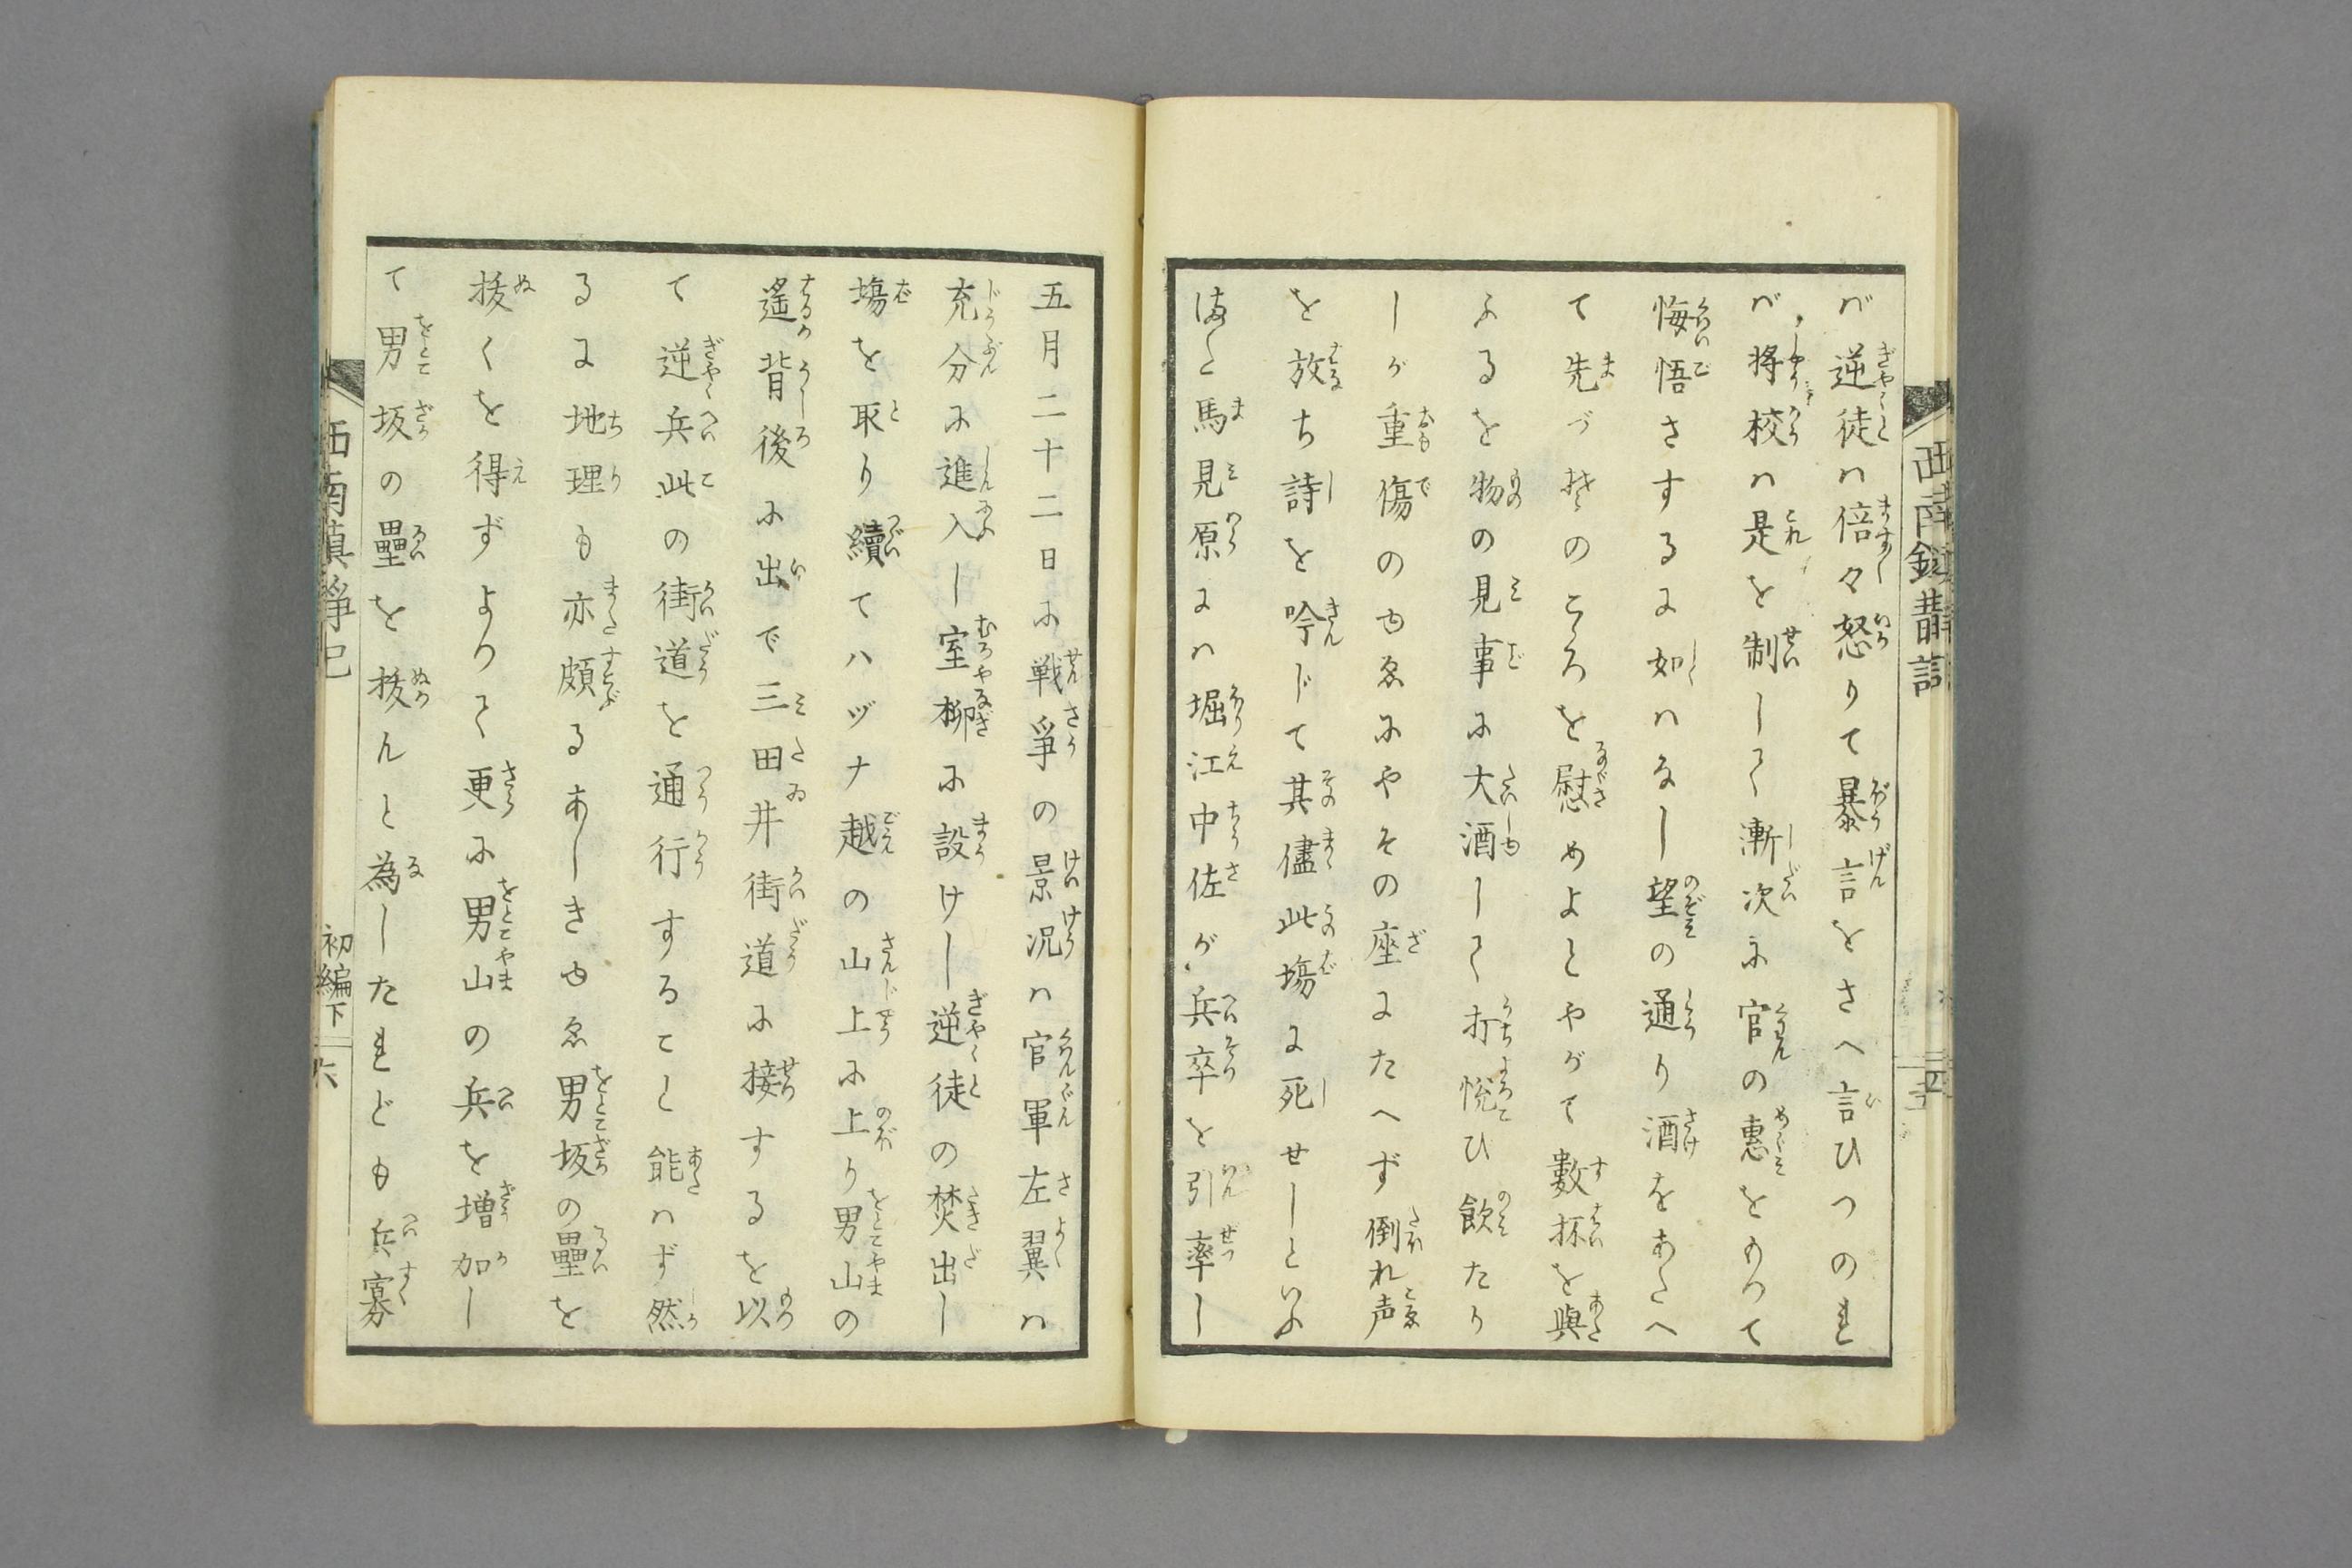 バ逆徒ハ倍々怒りて暴言をさへ言ひつのれ
バ将校ハ是を制して漸次に官の惠をもつて
悔悟さするに如ハなし望の通り酒をあたへ
て先づ其のこゝろを慰めよとやがて數杯を與
ふるを物の見事に大酒して打悦ひ飲たり
しが重傷のゆゑにやその座にたへず倒れ声
を放ち詩を吟じて其儘此塲に死せしといふ
また馬見原にハ堀江中佐が兵卒を引率し
五月二十二日に戦争の景况ハ官軍左翼ハ
充分に進入し室柳に設けし逆徒の焚出し
塲を取り續てハヅナ越の山上に上り男山の
遙背後に出で三田井街道に接するを以
て逆兵此の街道を通行すること能ハず然
るに地理も亦頗るあしきゆゑ男坂の壘を
拔くを得ずよつて更に男山の兵を増加し
て男坂の壘を拔んと為したれども兵寡
初編下
六